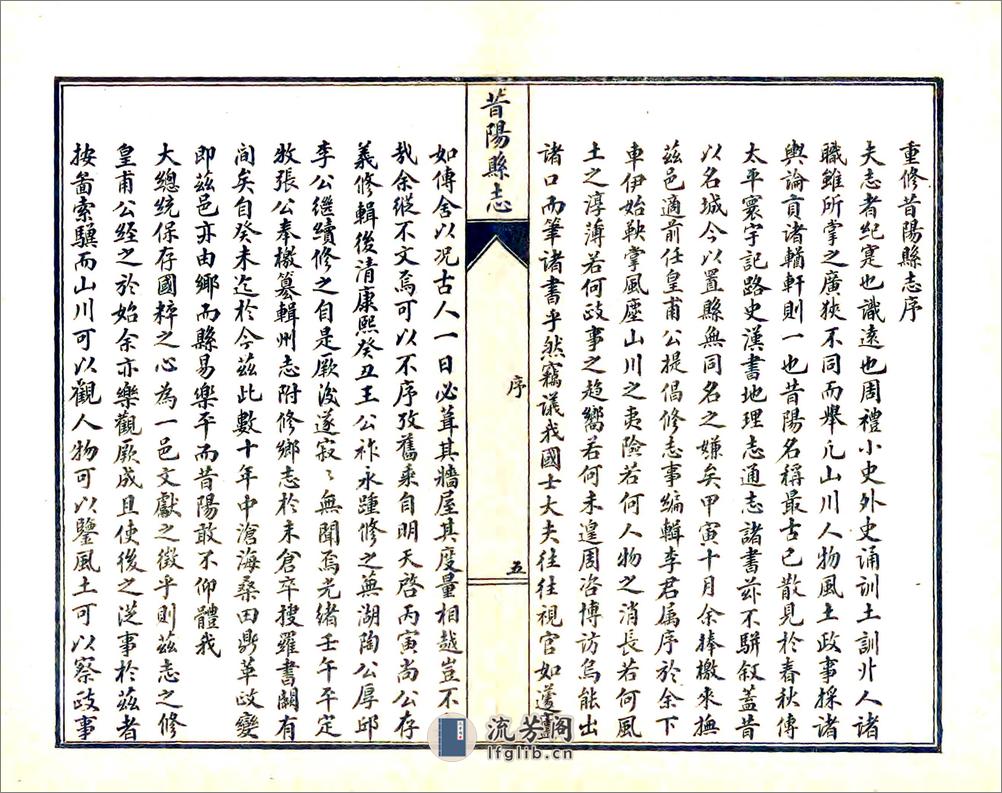 重修昔陽縣志序
夫志者紀寔也識遠也周禮小史外史誦訓土訓丱人諸
職雖所掌之廣狹不同而舉凡山川人物風土政事採諸
輿論貢諸輶軒則一也昔陽名稱最古已散見於春秋傳
太平寰宇記路史漢書地理志通志諸書茲不騈叙蓋昔
以名城今以置縣無同名之嫌矣甲寅十月余捧檄來撫
茲邑適前任皇甫公提倡修志事編輯李君属序於余下
車伊始鞅掌風塵山川之夷險若何人物之消長若何風
土之淳薄若何政事之趋嚮若何未遑周咨博訪烏能出
諸口而筆諸書乎然竊議我國士大夫往往視官如蘧廬
昔陽縣志
序
五
如傳舍以况古人一日必葺其牆屋其度量相越豈不
哉余縱不文焉可以不序攷舊乘自明天啓丙寅尚公存
義修輯後清康熙癸丑王公祚永踵修之蕪湖陶公厚邱
李公繼續修之自是厥後遂寂〻無聞焉光緒壬午平定
牧張公奉檄纂輯州志附修鄉志於末倉卒搜羅書闕有
间矣自癸未迄於今茲此數十年中滄海桑田鼎革政變
即茲邑亦由鄉而縣易樂平而昔陽敢不仰體我
大總統保存國粹之心為一邑文獻之徵乎則茲志之修
皇甫公經之於始余亦樂觀厥成且使後之從事於茲者
按啚索驥而山川可以觀人物可以鑒風土可以察政事
流芳閣
lfglib.cn